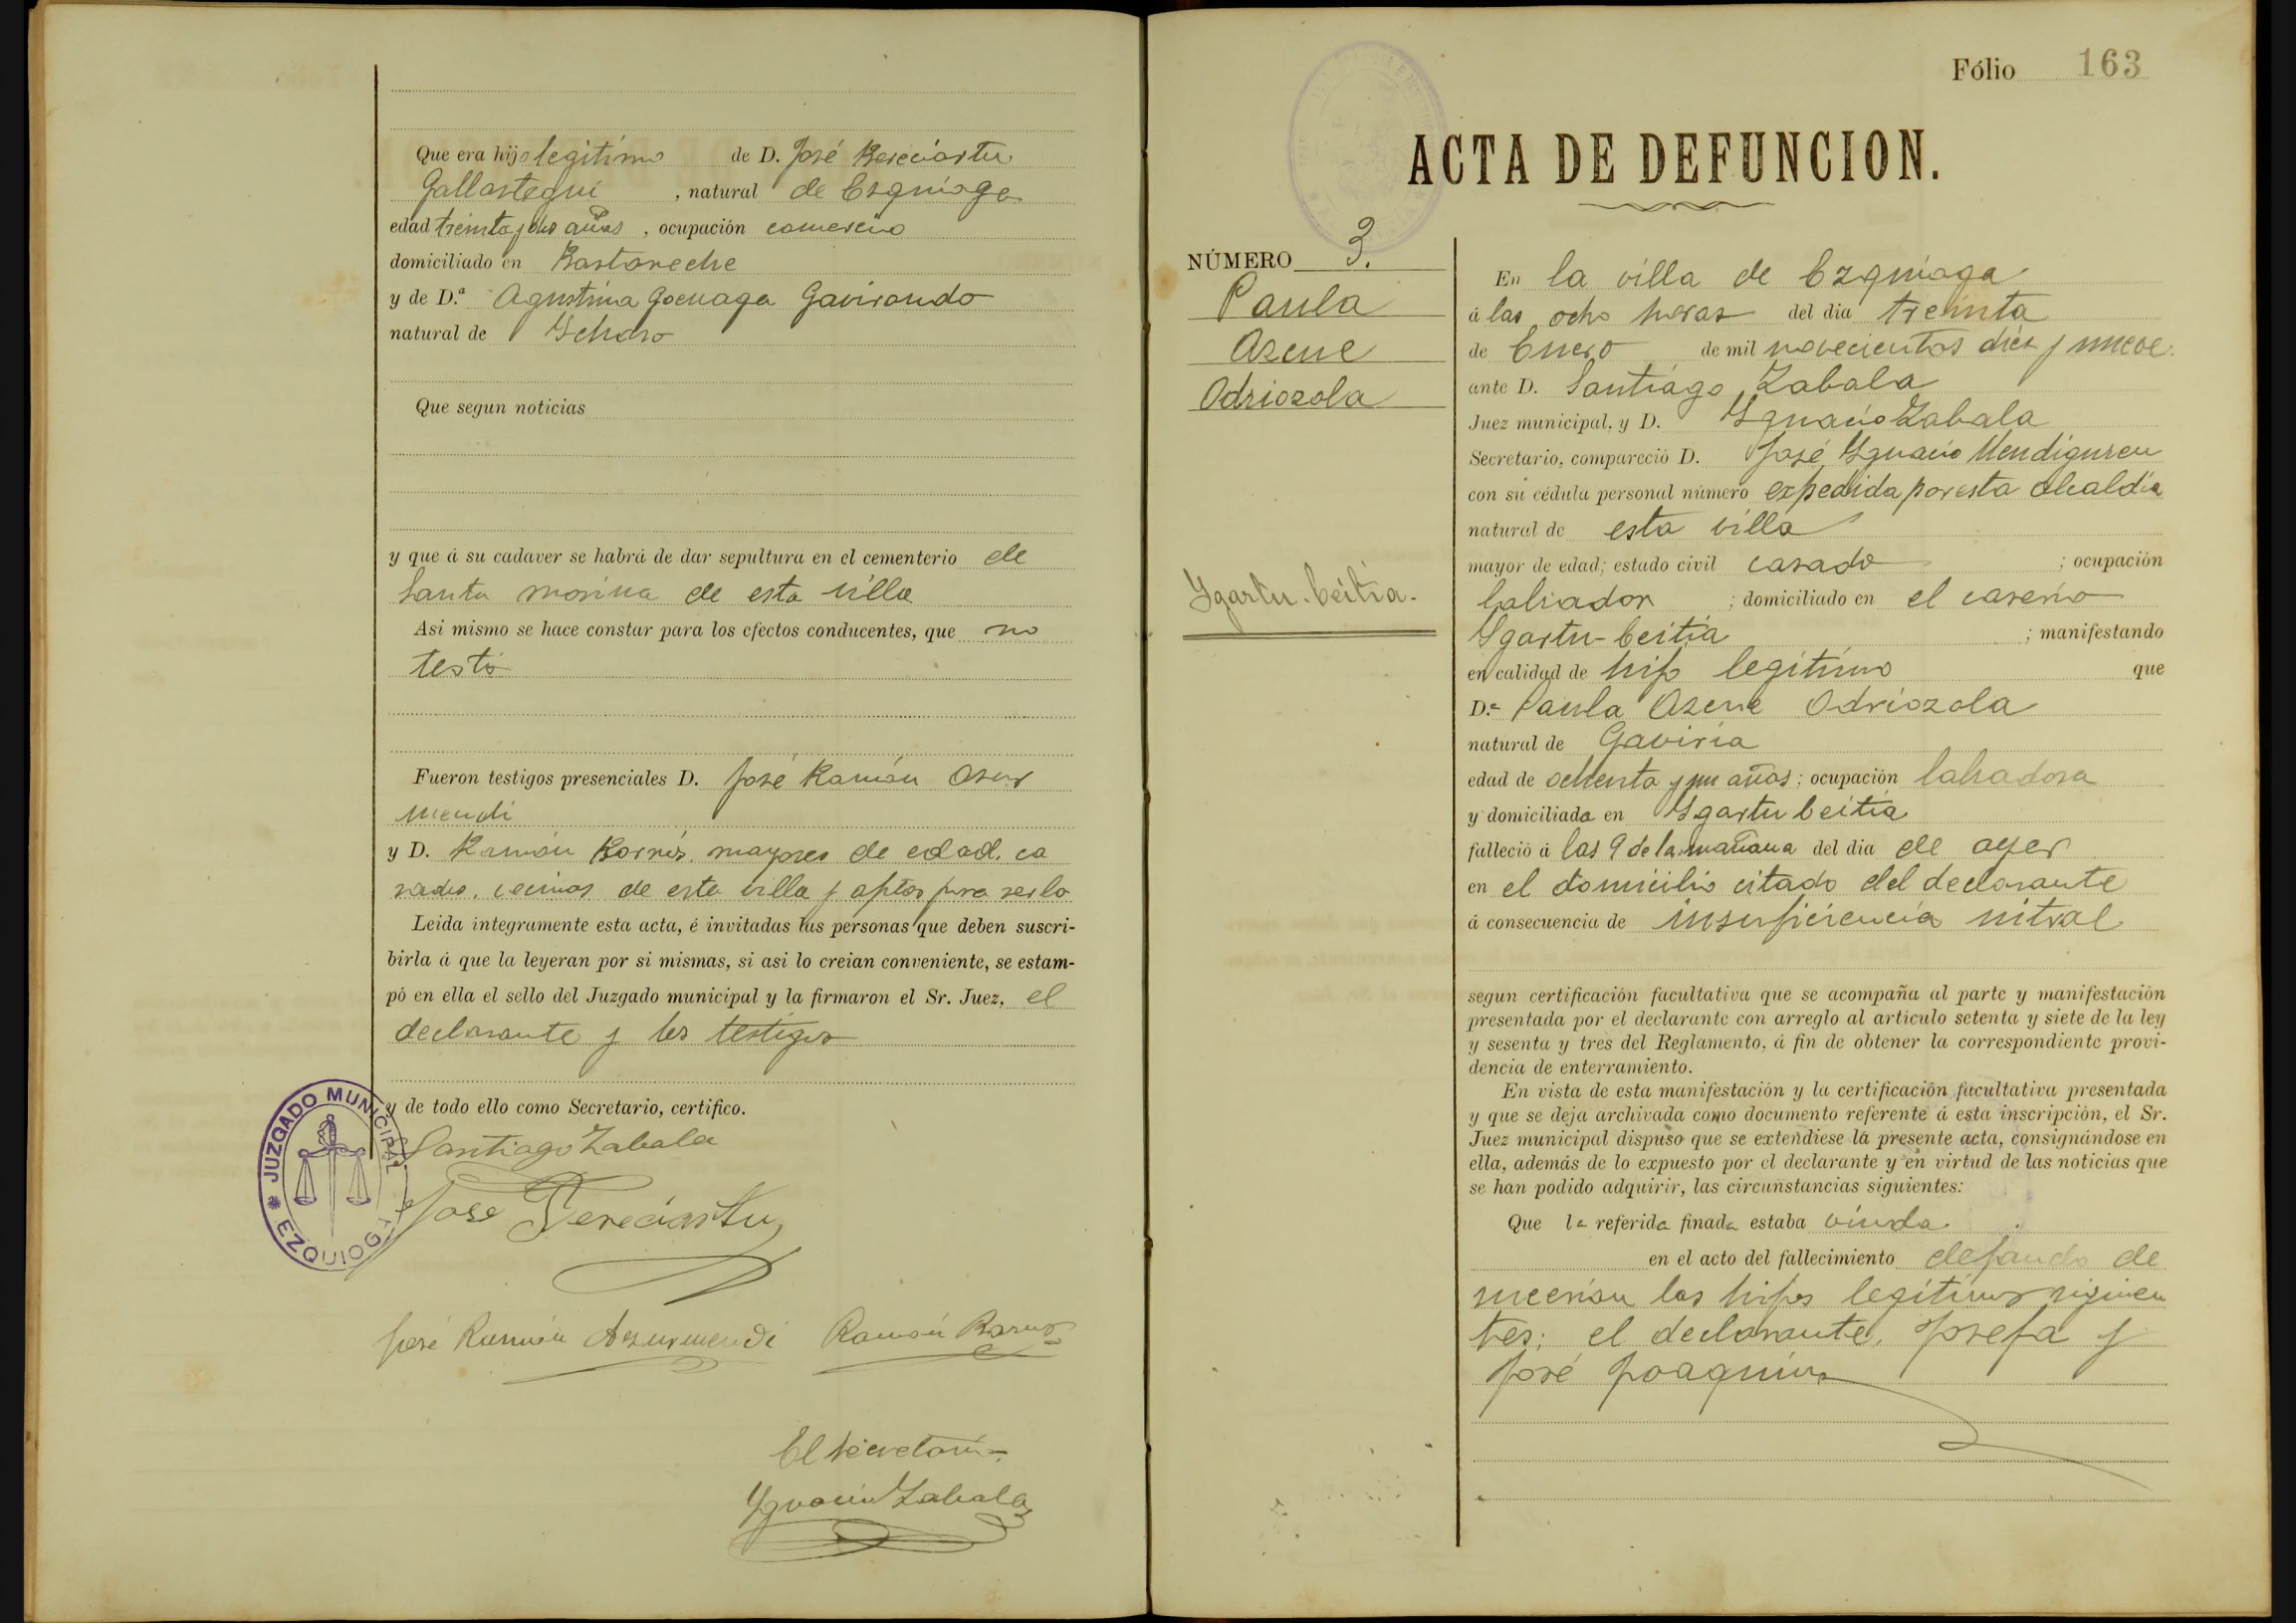 Que era hijo legitimo de D. José Bereciartu
Gallastegui , natural de Ezquioga
edad treinta y dos años , ocupación
domiciliado en Bastareche
y de D.ª Agustina Goenaga Gavirondo
natural de Ychaso
Que segun noticias
y que á su cadaver se habrá de dar sepultura en el cementerio de
Santa Marina de esta villa
Asi mismo se hace constar para los efectos conducentes, que no
testó
Fueron testigos presenciales D. José Ramón Azur
mendi
y D. Ramón mayores de edad, ca
sados, vecinos de esta villa y aptos para serlo
Leida integramente esta acta, é invitadas las personas que deben suscri-
birla á que la leyeran por si mismas, si asi lo creian conveniente, se estam-
pó en ella el sello del Juzgado municipal y la firmaron el Sr. Juez, el
declarante y los testigos
y de todo ello como Secretario, certifico.
JUZGADO MUNICIPAL
Santiago Zabala
Jose Bereciartu
José Ramón Azurmendi Ramón
El Secretario
Ygnacio Zabala
Fólio 163
ACTA DE DEFUNCION.
NÚMERO 3.
Paula
Asene
Odriozola
Ygartu-beitia.
En la villa de Ezquioga
á las ocho horas del dia treinta
de Enero de mil novecientos diez y nueve
ante D. Santiago Zabala
Juez municipal, y D. Ygnacio Zabala
Secretario, compareció D. José Ygnacio Mendiguren
con su cédula personal número expedida por esta alcaldía
natural de esta villa
mayor de edad; estado civil casado ; ocupación
labrador ; domiciliado en el caserío
Ygartu-beitia ; manifestando
en calidad de hijo legitimo que
D.ª Paula Asene Odriozola
natural de Gaviria
edad de ochenta y un años; ocupación labradora
y domiciliada en Ygartu beitia
falleció á las 9 de la mañana del dia de ayer
en el domicilio citado del declarante
á consecuencia de insuficiencia mitral
segun certificación facultativa que se acompaña al parte y manifestación
presentada por el declarante con arreglo al artículo setenta y siete de la ley
y sesenta y tres del Reglamento, á fin de obtener la correspondiente provi-
dencia de enterramiento.
En vista de esta manifestación y la certificación facultativa presentada
y que se deja archivada como documento referente á esta inscripción, el Sr.
Juez municipal dispuso que se extendiese la presente acta, consignándose en
ella, además de lo expuesto por el declarante y en virtud de las noticias que
se han podido adquirir, las circunstancias siguientes:
Que la referida finada estaba viuda
en el acto del fallecimiento dejando de
sucesión los hijos legitimos siguien
tes; el declarante, Josefa y
José Joaquin